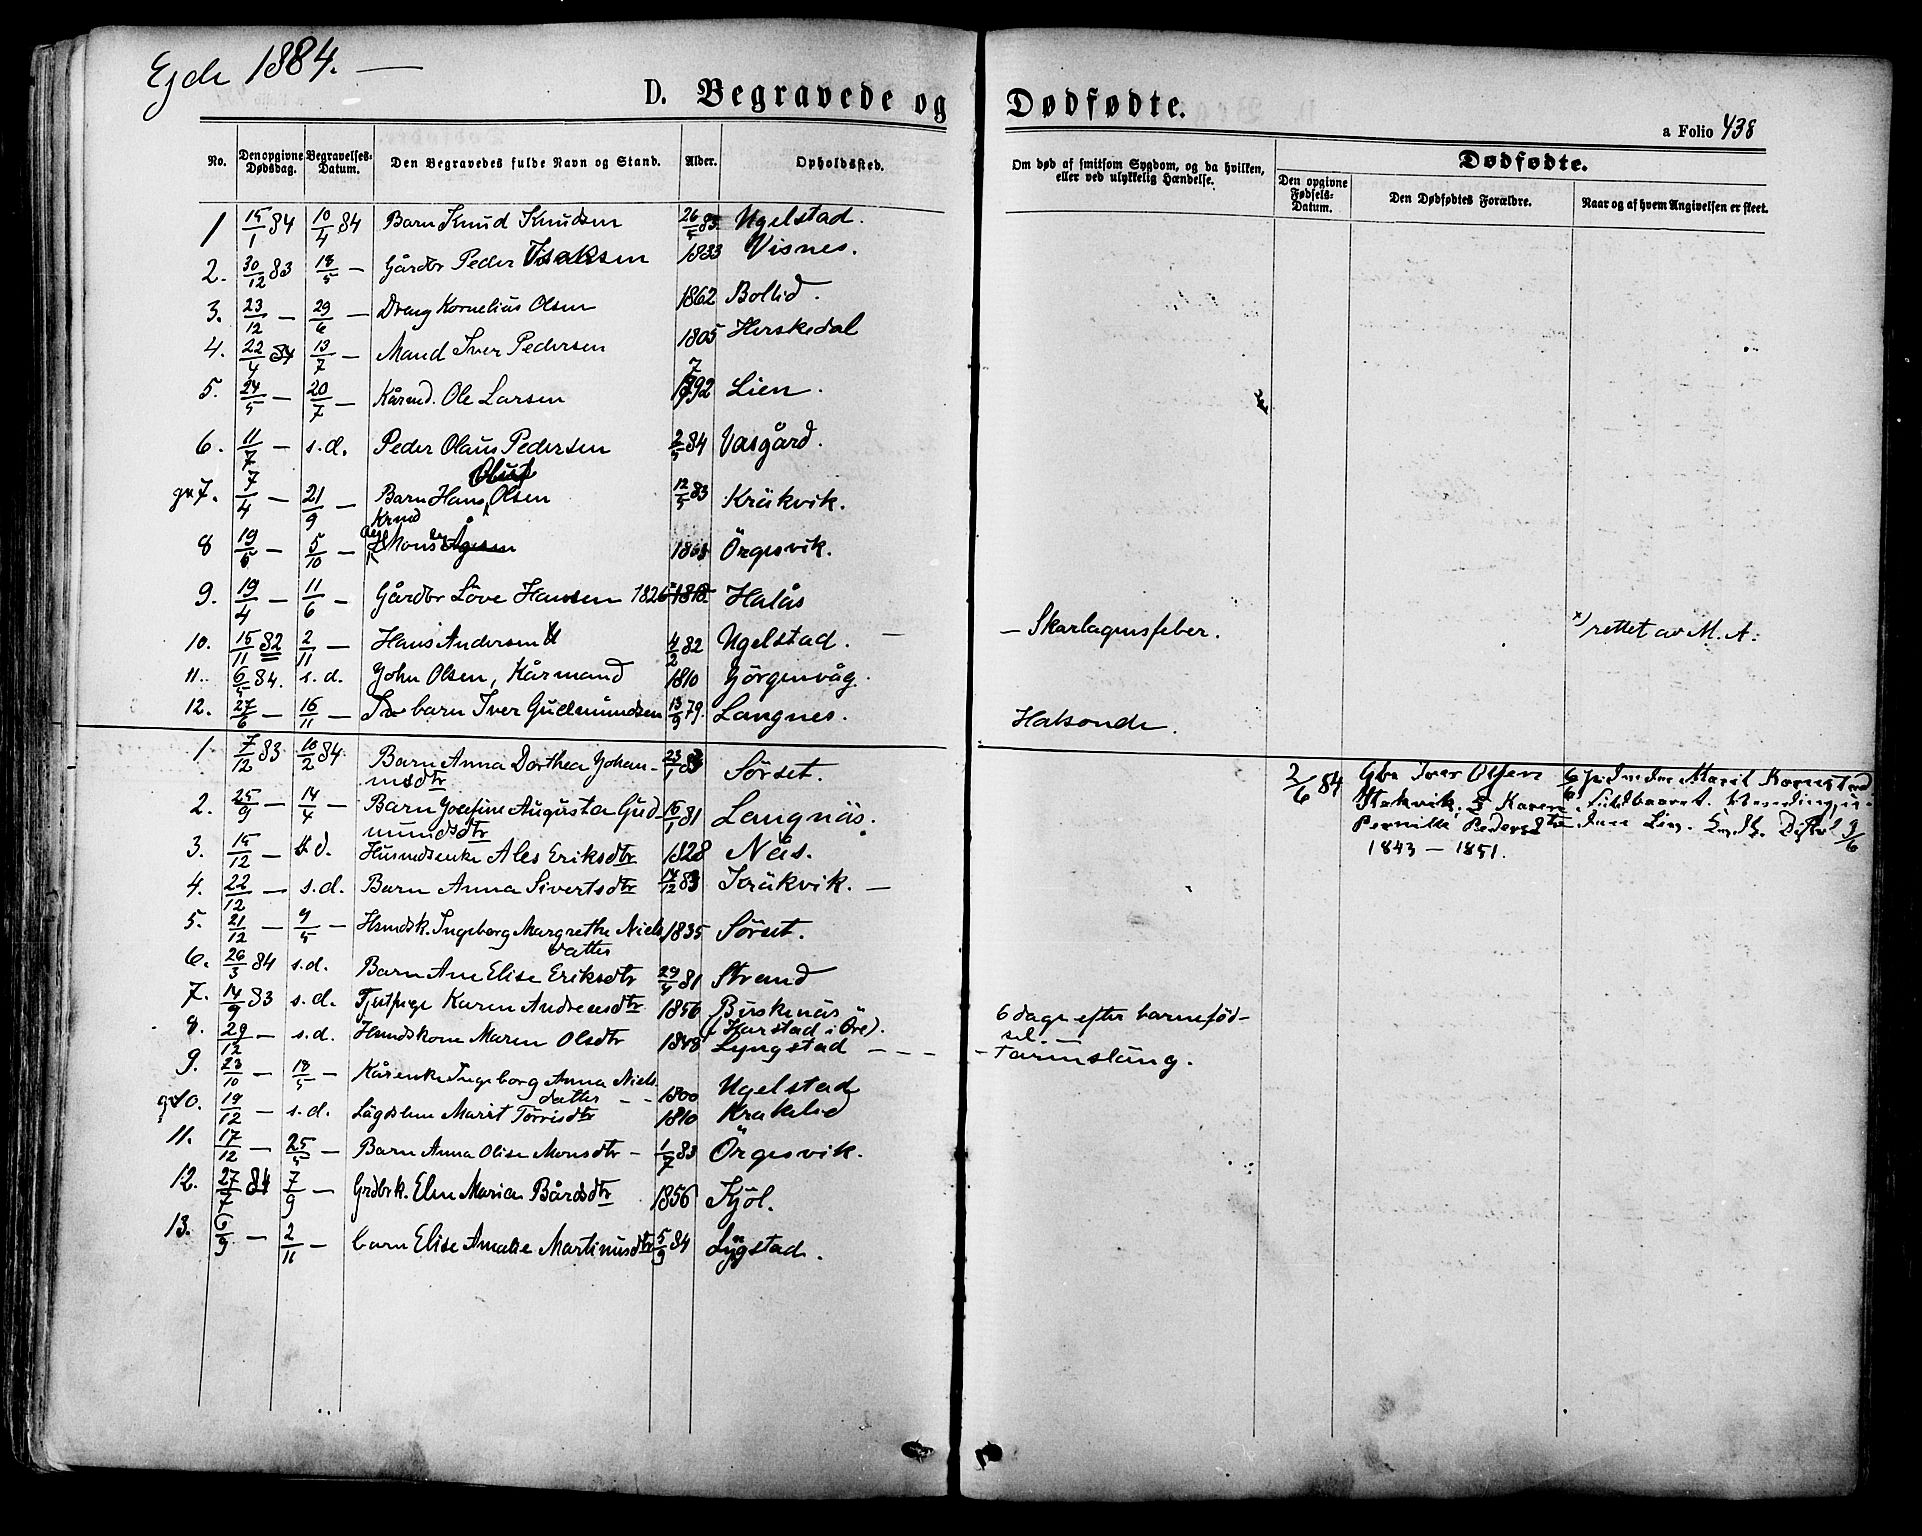 Ejde 1884. —
D. Begravede og Dødfødte.
a Folio 438
No. Den opgivne Dødsdag. Begravelses-Datum. Den Begravedes fulde Navn og Stand. Alder. Opholdssted. Om død af smitsom Sygdom, og da hvilken, eller ved ulykkelig Hændelse. Dødfødte.
Den opgivne Fødsels-Datum. Den Dødfødtes Forældre. Naar og af hvem Angivelsen er skeet.
1 15/1 84 10/4 84 Barn Knud Knudsen 26/5 83 Ugelstad.
2. 30/12 83 18/5 — Gårdbr Peder Isaksen 1833 Visnes.
3. 23/12 — 29/6 — Dreng Kornelius Olsen 1862 Bollid.
4. 22/4 84 13/7 — Mand Iver Pedersen 1805 Herskedal
5. 24/5 — 20/7 — Kårmd. Ole Larsen 1792 Lien.
6. 11/7 — s.d. Peder Olaus Pedersen 2/5 84 Vasgård.
7. 7/4 — 21/9 — Barn Hans Oluf Olsen 12/5 83 Kråkvik.
8 19/5 — 5/10 — Örgesvik.
9. 19/4 — 11/6 — Gårdbr Löve Hansen 1826 Halås
10. 15/11 82 2/11 — Hans Andersen 4/2 82 Ugelstad. — — Skarlagensfeber. x) rettet av M. A:
11. 6/5 84. s.d. John Olsen, Kårmand 1810 Görgenvåg.
12. 27/6 — 16/11 — barn Iver Gudmundsen 13/9 79. Langnes. Halsonde.
1. 7/12 83 10/2 84 Barn Anna Dorthea Johan-
nesdtr 23/1 83 Sörset. 2/6 84 Gbr Iver Olsen
2. 25/9 — 14/4 — Barn Josefine Augusta Gud-
mundsdtr 15/1 81 Langnäs. Stokvik. & Karen
Pernille Pedersdtr
3. 15/12 — s.d. Husmdsenke Ales Eriksdtr 1828 Näs. 1843 — 1851.
4. 22/12 — s.d. Barn Anna Sivertsdtr 14/12 83 Kråkvik. —
5. 21/12 — 9/5 — Hsmdsk. Ingeborg Margrethe Niels
datter 1835 Sörset.
6. 26/3 84 s.d. Barn Ane Elise Eriksdtr 29/4 81 Strand
7. 14/9 83 s.d. Tjpige Karen Andreasdtr 1856 Birkenäs
(i Harstad i Öre). 6 dage efter barnefød-
sel
8. 29/12 — s.d. Hsmdskone Maren Olsdtr 1848 Lyngstad — — — — Tarmslyng.
9. 23/10 — 18/5 — Kårenke Ingeborg Anna Niels
datter — — 1800 Ugelstad
10. 19/12 — s.d. Lägdslem Marit Torrisdtr 1810 Kraklid
11. 17/12 — 25/5 — Barn Anna Olise Monsdtr — 1/7 83 Örgesvik.
12. 27/7 84 7/9 — Grdbrk. Elen Maria Bårdsdtr 1856 Kjöl.
13. 6/9 — 2/11 — barn Elise Amalie Martinusdtr 5/9 84 Lyngstad.